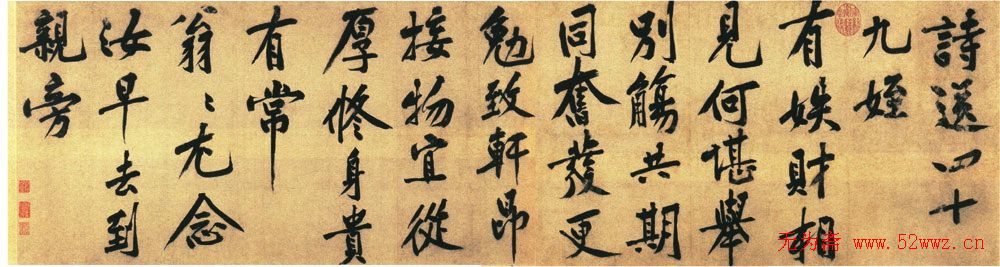 詩送四十
九姪
有娭財相
見何堪舉
別觴共期
同奮發更
勉致軒昂
接物宜從
厚脩身貴
有常
翁〻尤念
汝早去到
親旁
无为斋 www.52wwz.cn